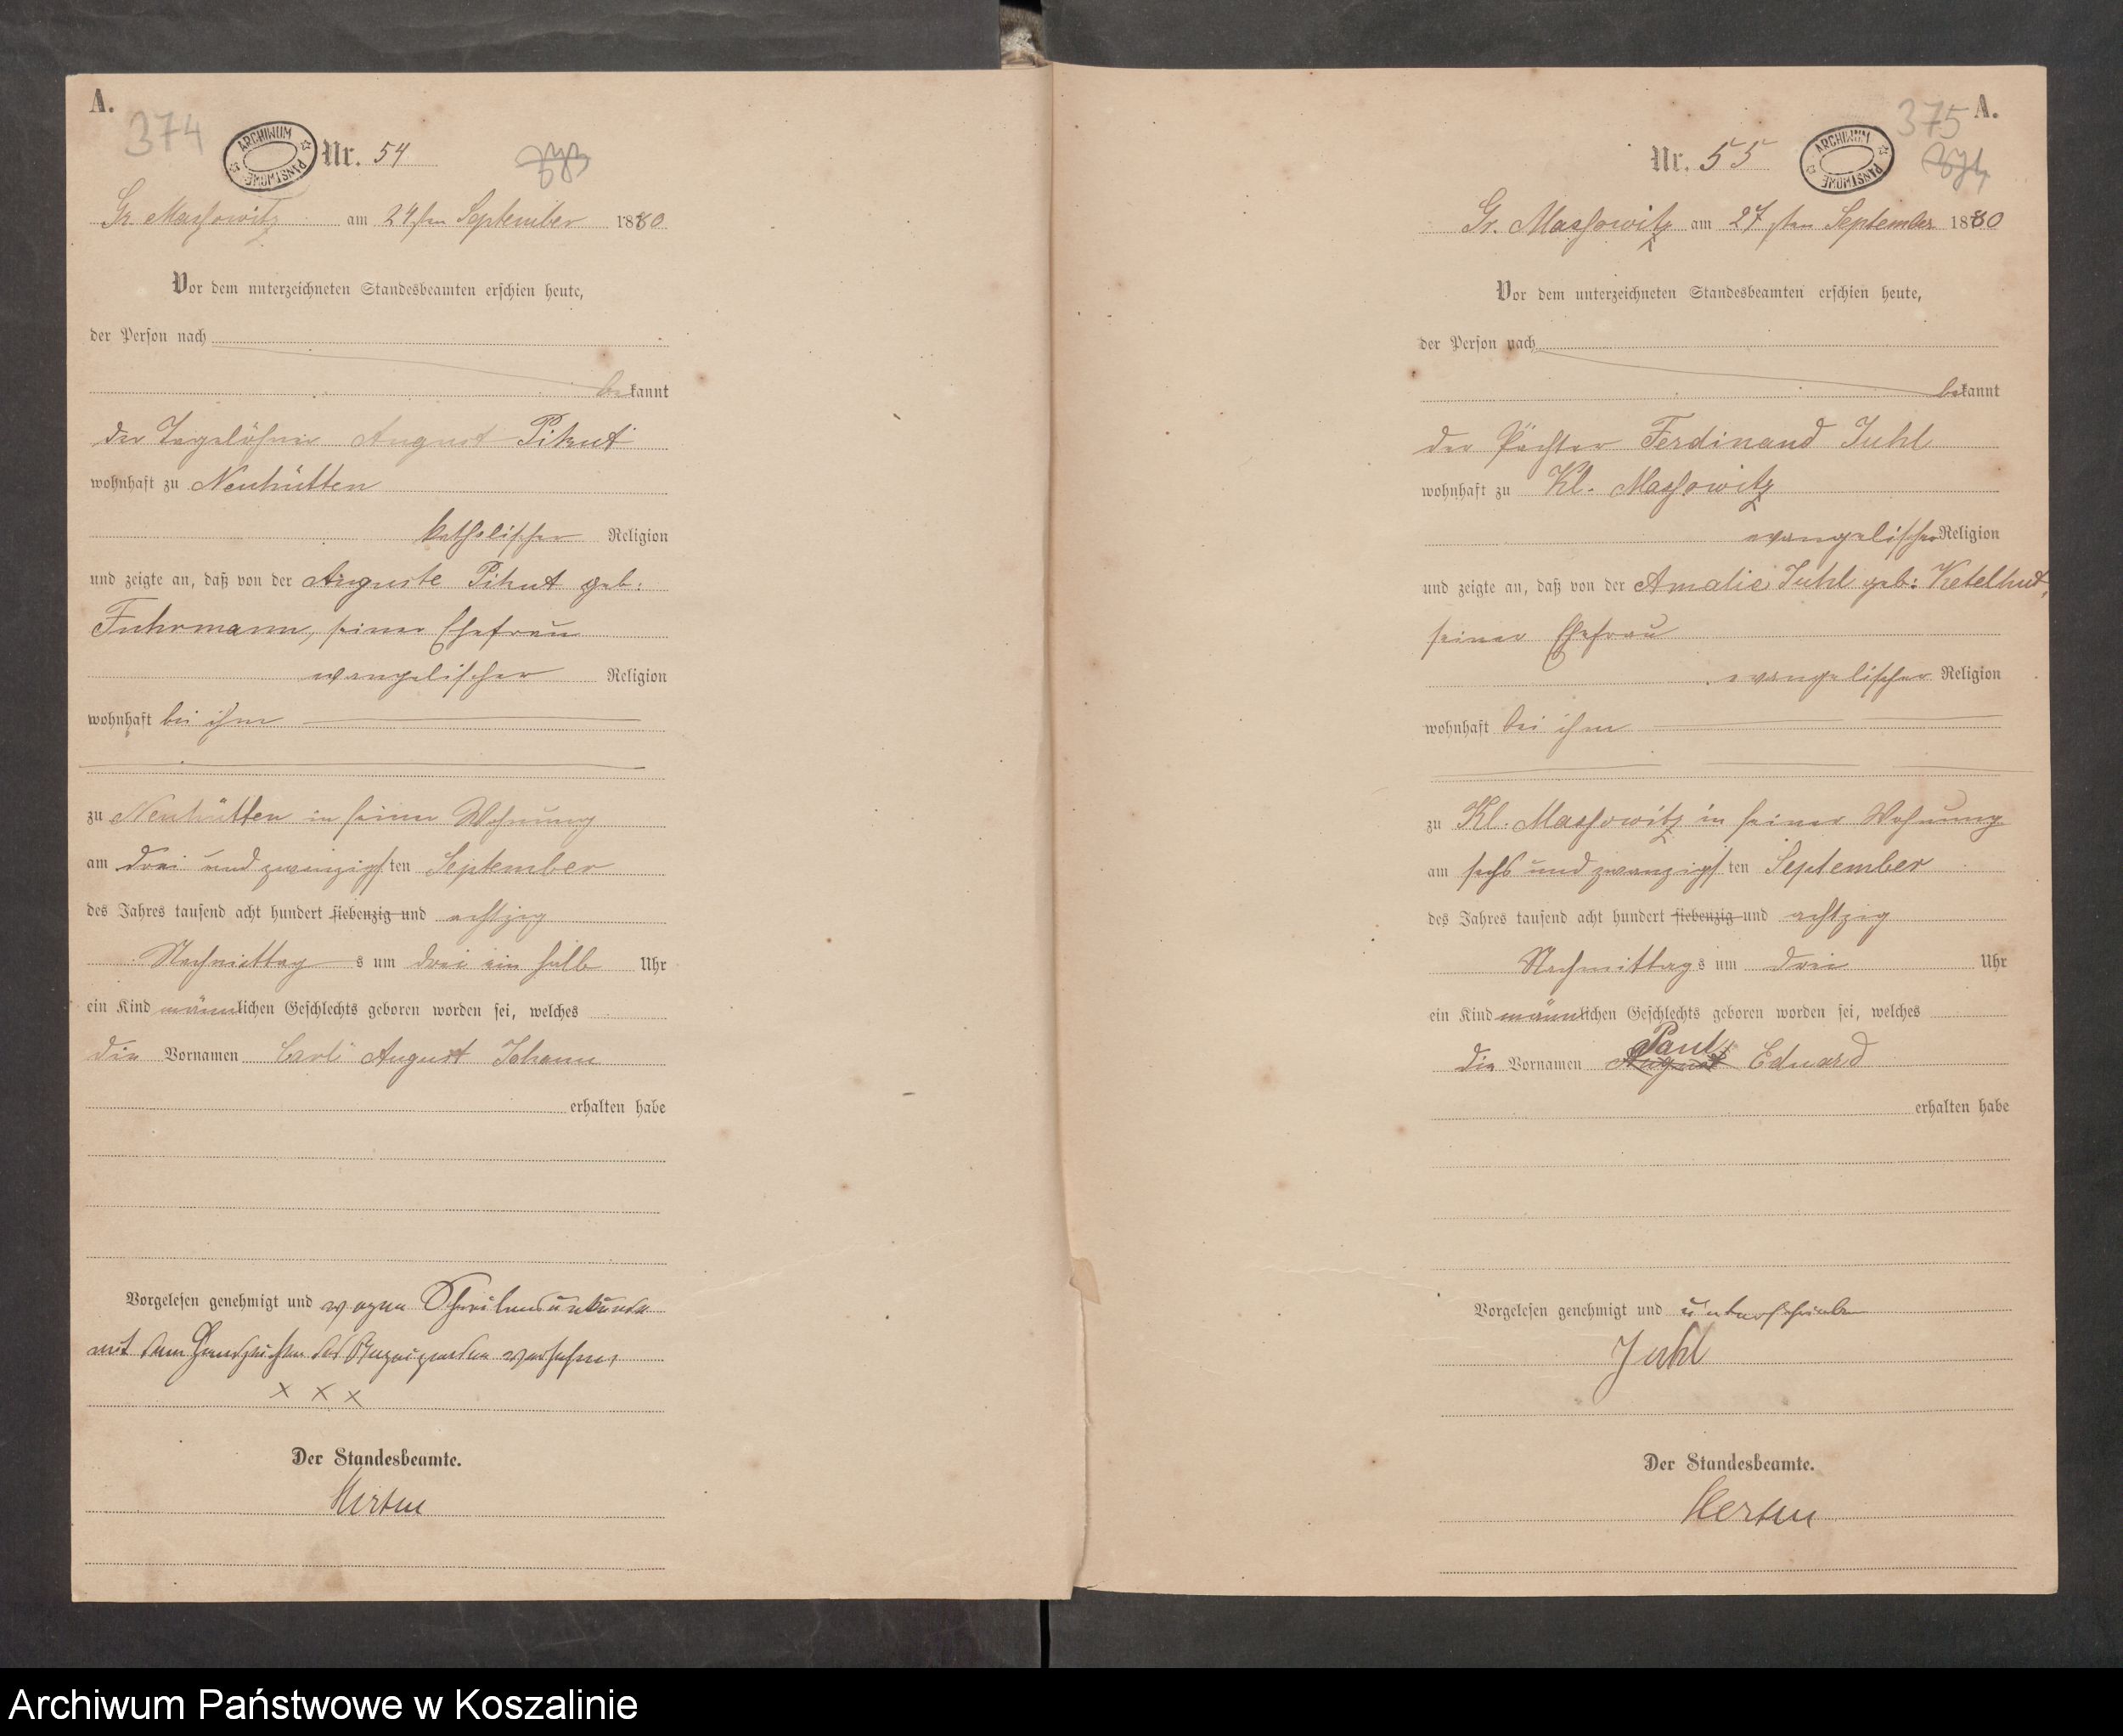 A.
374
ARCHIWUM PAŃSTWOWE
Nr. 54
373
Gr. Massowitz am 24ten September 1880
Vor dem unterzeichneten Standesbeamten erschien heute,
der Person nach
bekannt
der Tagelöhner August Pikut
wohnhaft zu Neuhütten
katholischer Religion
und zeigte an, daß von der Auguste Pikut geb:
Fuhrmann, seiner Ehefrau
evangelischer Religion
wohnhaft bei ihm
zu Neuhütten in seiner Wohnung
am drei und zwanzigsten September
des Jahres tausend acht hundert siebenzig und achtzig
Nachmittags um drei ein halb Uhr
ein Kind männlichen Geschlechts geboren worden sei, welches
die Vornamen Carl August Johann
erhalten habe
Vorgelesen genehmigt und wegen Schreibensunkunde
mit dem Handzeichen des Anzeigenden versehen
x x x
Der Standesbeamte.
A.
375
Nr. 55
ARCHIWUM PAŃSTWOWE
374
Gr. Massowitz am 27sten September 1880
Vor dem unterzeichneten Standesbeamten erschien heute,
der Person nach
bekannt
der Pächter Ferdinand Juhl
wohnhaft zu Kl. Massowitz
evangelischer Religion
und zeigte an, daß von der Amalie Juhl geb: Ketelhut,
seiner Ehefrau
evangelischer Religion
wohnhaft bei ihm
zu Kl. Massowitz in seiner Wohnung
am sechs und zwanzigsten September
des Jahres tausend acht hundert siebenzig und achtzig
Nachmittags um drei Uhr
ein Kind männlichen Geschlechts geboren worden sei, welches
Paul
die Vornamen August Eduard
erhalten habe
Vorgelesen genehmigt und unterschrieben
Juhl
Der Standesbeamte.
Archiwum Państwowe w Koszalinie